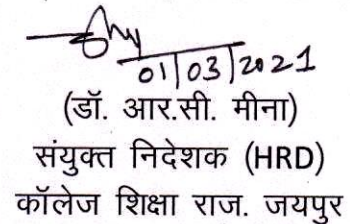 01/03/2021
(डॉ. आर.सी. मीना)
संयुक्त निदेशक (HRD)
कॉलेज शिक्षा राज. जयपुर